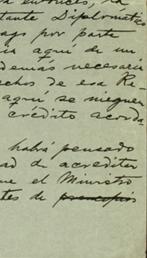 entonces, la
tante Diplomático
ago por parte
ia aquí de un
demás necesario
echos de esa Re-
aquí se nieguen
crédito acorda-
habrá pensado
ad de acreditar
ue el Ministro
tes de principios